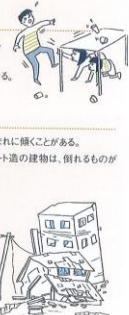 る。
まれに傾くことがある。
ート造の建物は、倒れるものが